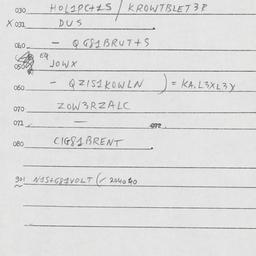 030 HOL1PC+1S / KROWTBLET3P
X 031 DUS
040 - QG81BRUT+S
050 EQ JOWX
060 - QZIS1KOWLN ) = KA.L3XL3Y
070 ZOW3RZALC
071 —
080 CIG81BRENT
901 N1S+G81VOLT (- 204040